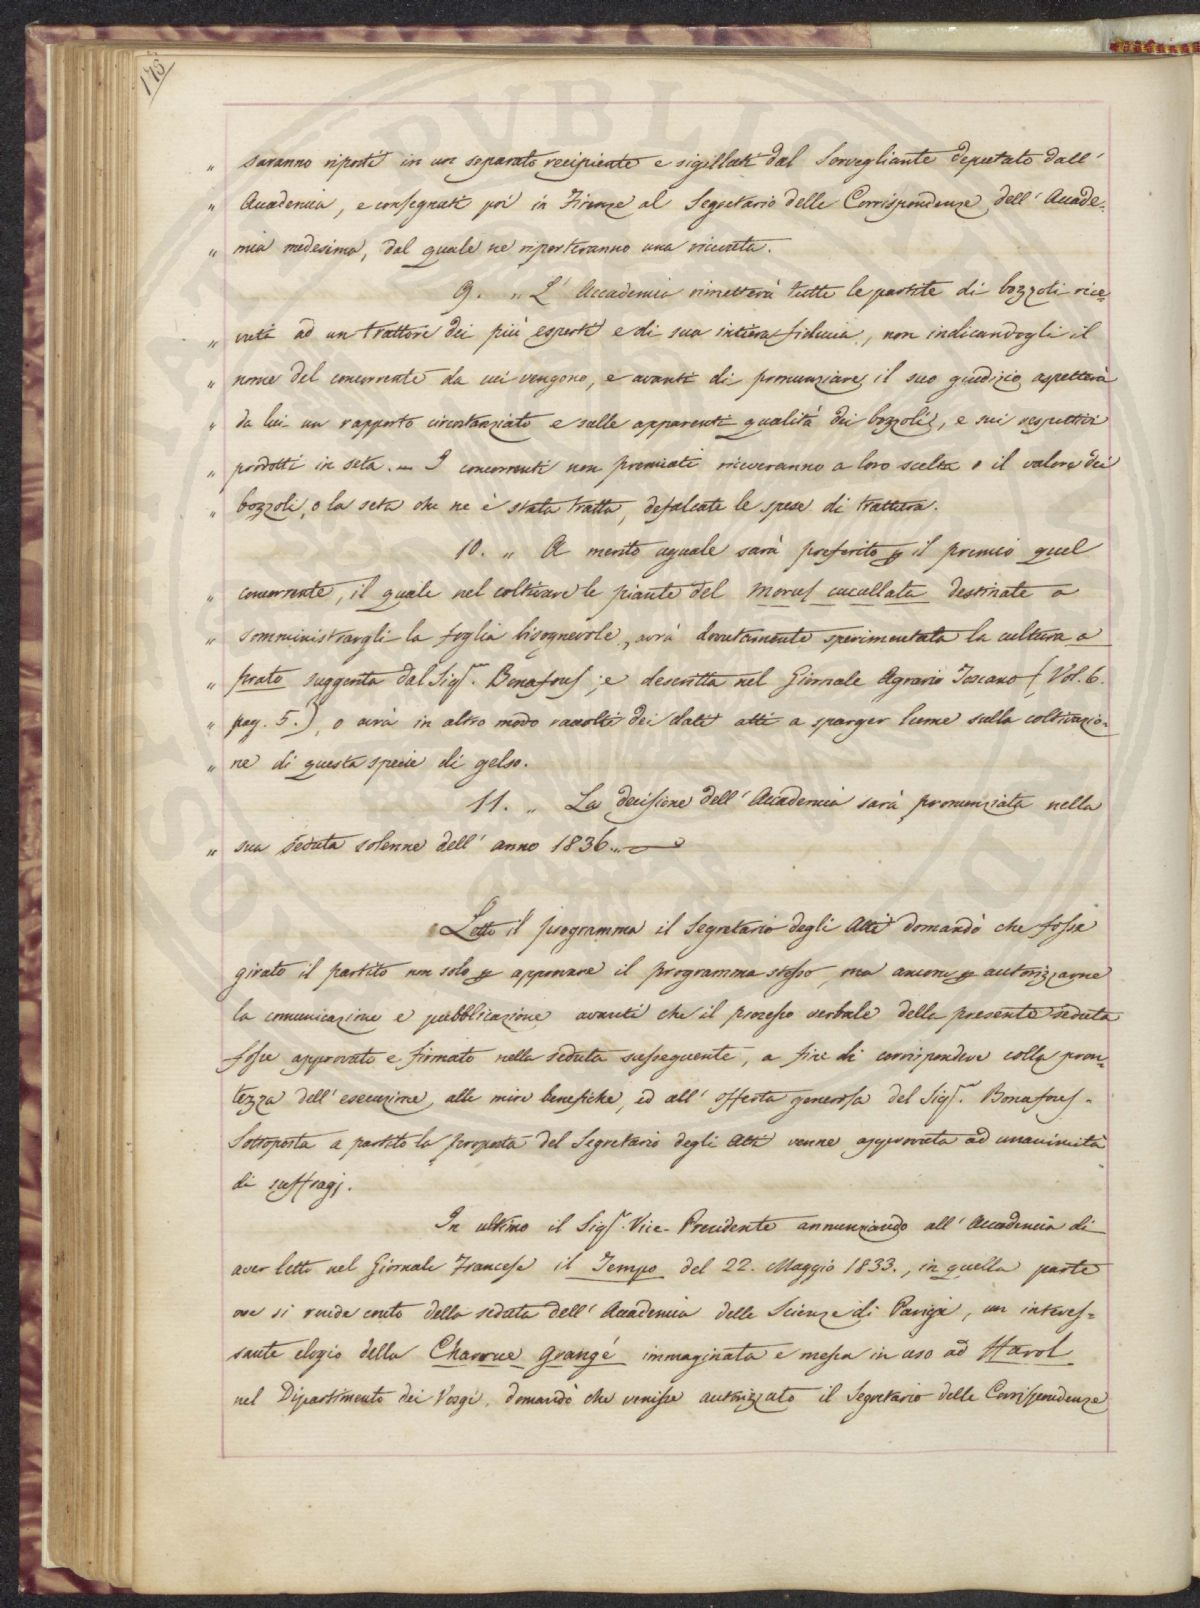 175
„ saranno riposti in un separato recipiente e sigillati dal Sorvegliante deputato dall'
„ Accademia, e consegnati poi in Firenze al Segretario delle Corrispondenze dell'Accade-
„ mia medesima, dal quale ne riporteranno una ricevuta.
9. „ L'Accademia rimetterà tutte le partite di bozzoli rice-
„ vuti ad un trattore dei più esperti e di sua intiera fiducia, non indicandogli il
„ nome del concorrente da cui vengono, e avanti di pronunziare il suo giudizio aspetterà
„ da lui un rapporto circostanziato e sulle apparenti qualità dei bozzoli, e sui respettivi
„ prodotti in seta. — I concorrenti non premiati riceveranno a loro scelta o il valore dei
„ bozzoli, o la seta che ne è stata tratta, defalcate le spese di trattura.
10. „ A merito uguale sarà preferito p il premio quel
„ concorrente, il quale nel coltivare le piante del Morus cucullata destinate a
„ somministrargli la foglia bisognevole, avrà dovutamente sperimentata la cultura a
„ prato suggerita dal Sigr. Bonafous, e descritta nel Giornale Agrario Toscano (Vol. 6.
„ pag. 5.), o avrà in altro modo raccolti dei dati atti a sparger lume sulla coltivazio-
„ ne di questa specie di gelso.
11. „ La decisione dell'Accademia sarà pronunziata nella
„ sua seduta solenne dell'anno 1836.
Letto il programma il Segretario degli Atti domandò che fosse
girato il partito non solo p approvare il programma stesso, ma ancora p autorizzarne
la comunicazione e pubblicazione avanti che il processo verbale della presente seduta
fosse approvato e firmato nella seduta susseguente, a fine di corrispondere colla pron-
tezza dell'esecuzione alle mire benefiche, ed all'offerta generosa del Sigr. Bonafous.
Sottoposta a partito la proposta del Segretario degli Atti venne approvata ad unanimità
di suffragj.
In ultimo il Sigr. Vice-Presidente annunziando all'Accademia di
aver letto nel Giornale Francese il Tempo del 22. Maggio 1833., in quella parte
ove si rende conto della seduta dell'Accademia delle Scienze di Parigi, un interes-
sante elogio della Charrue Grangé immaginata e messa in uso ad Harol
nel Dipartimento dei Vosgi, domandò che venisse autorizzato il Segretario delle Corrispondenze